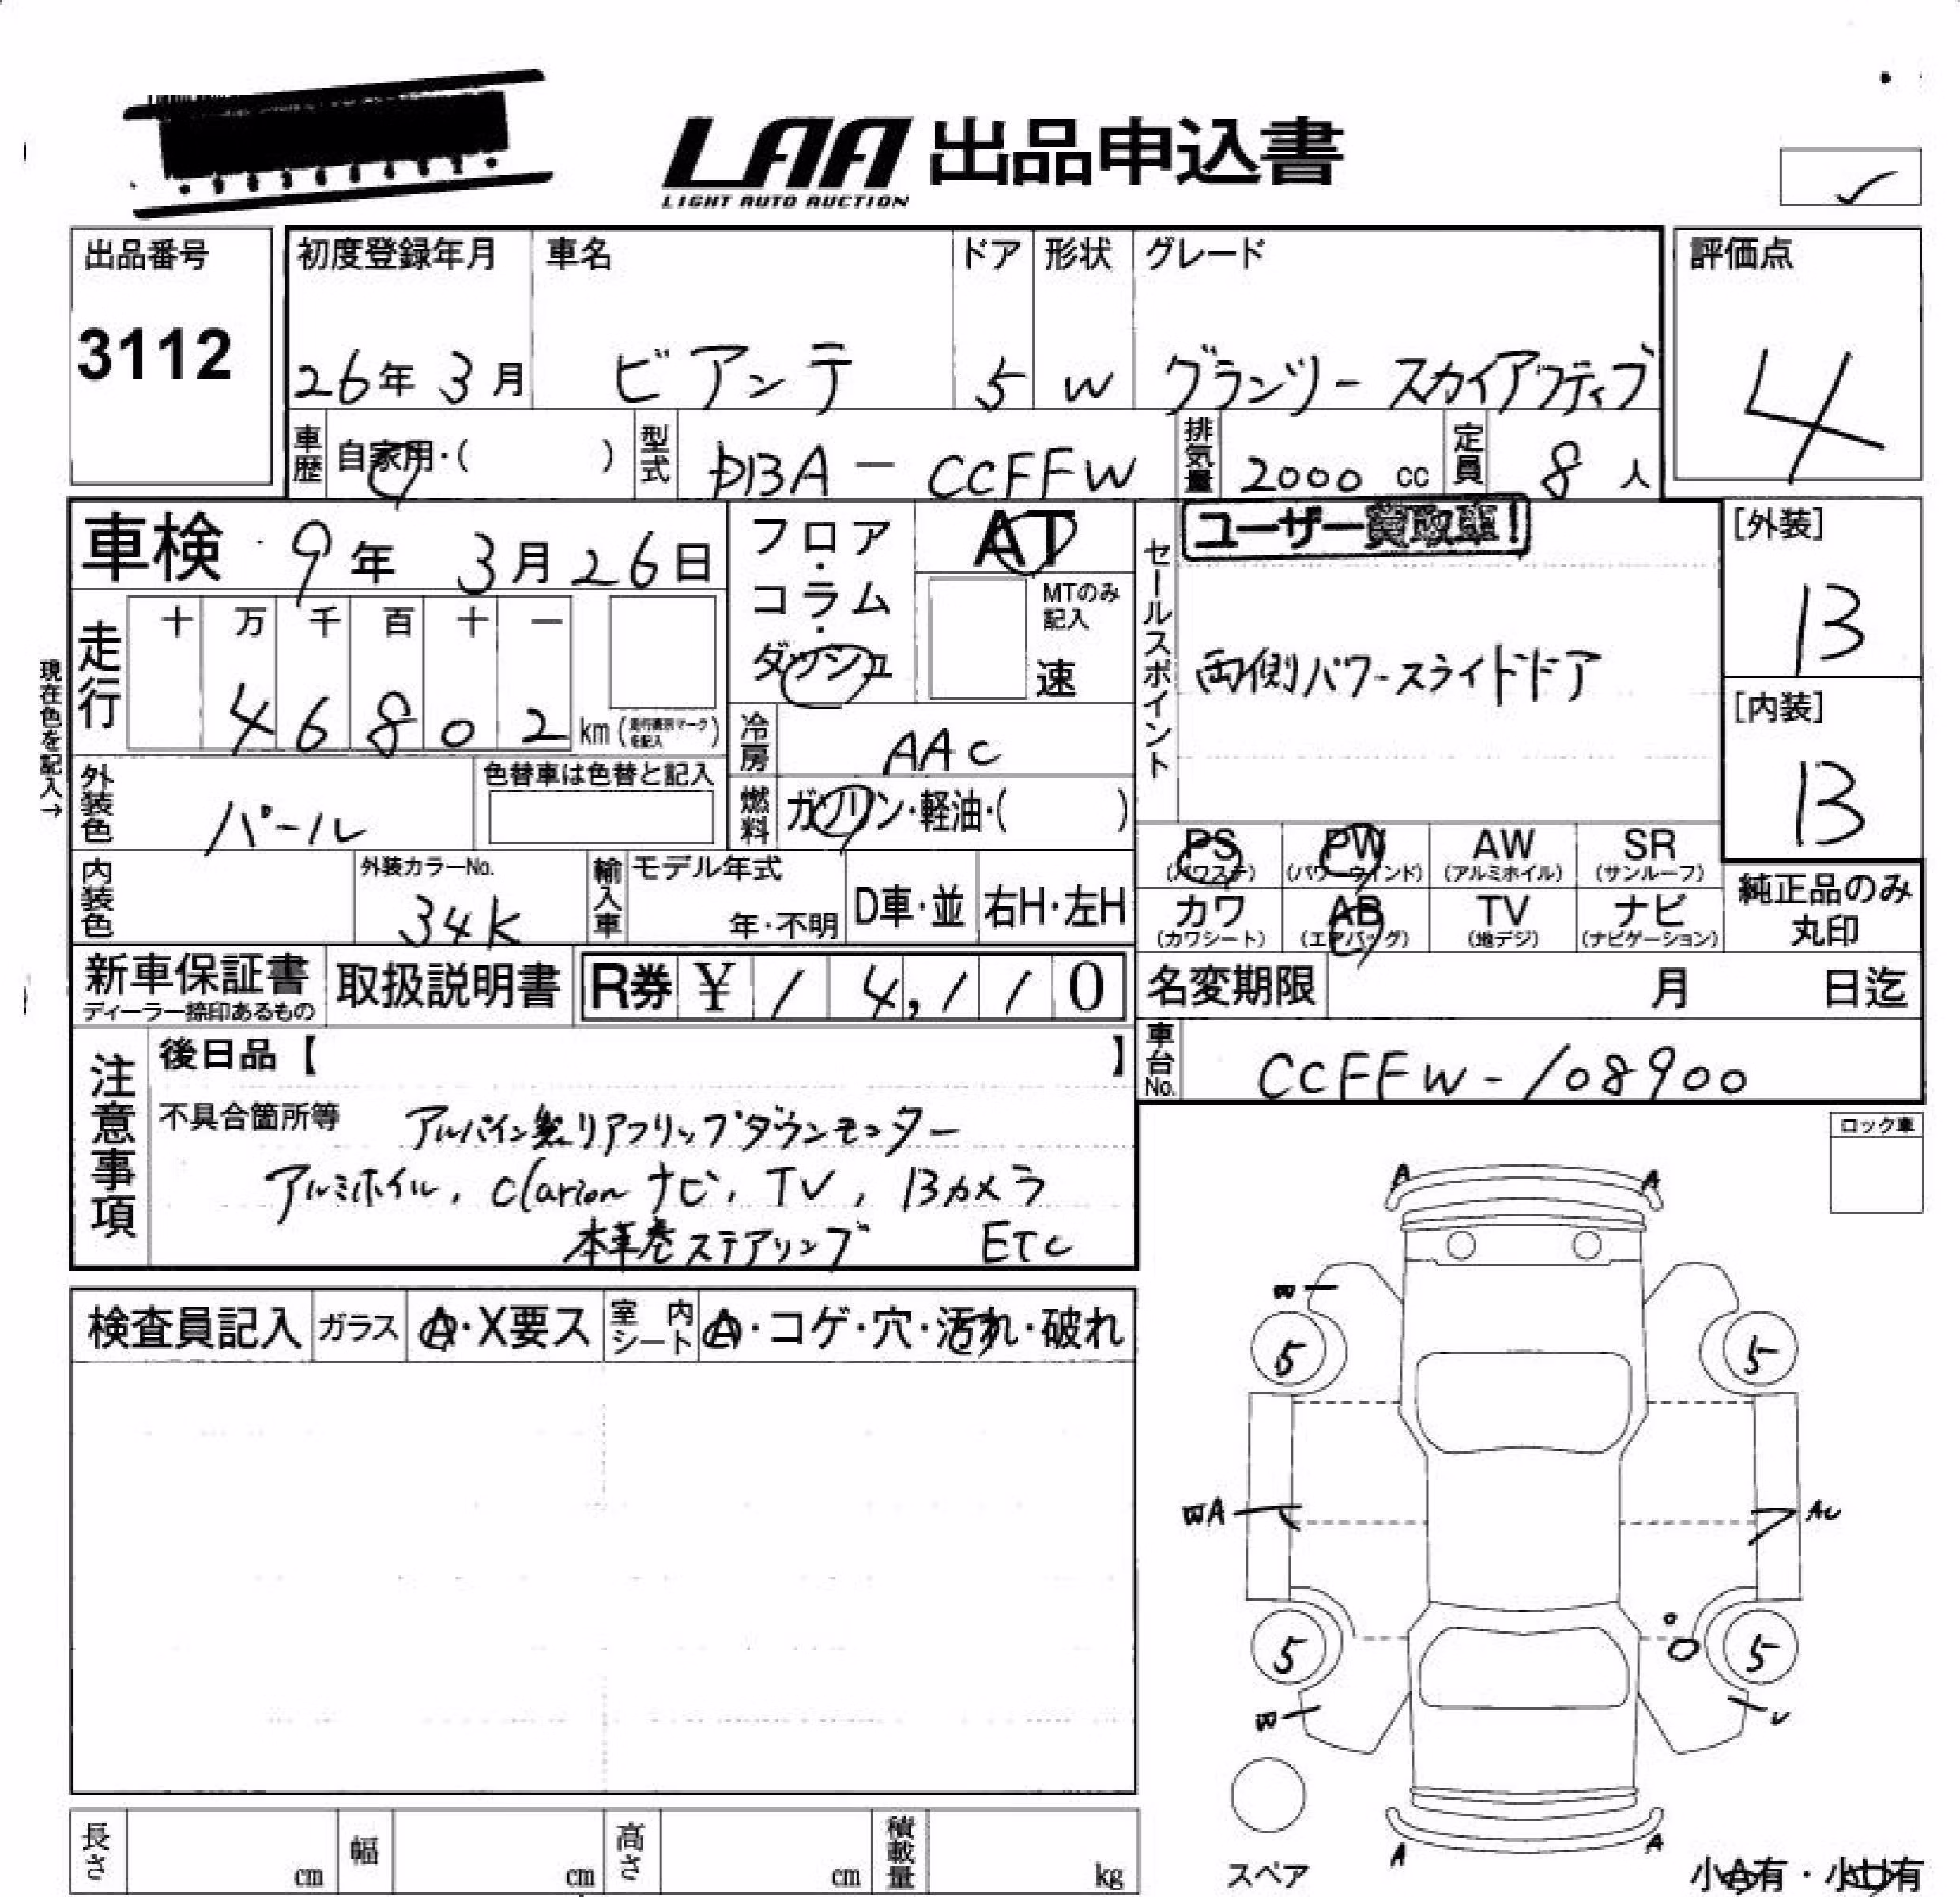 LAA 出品申込書
LIGHT AUTO AUCTION
出品番号
3112
初度登録年月
26年 3月
車名
ビアンテ
ドア
5
形状
W
グレード
グランツー スカイアクティブ
評価点
4
車歴
自家用・( )
型式
DBA - CCFFW
排気量
2000 cc
定員
8 人
車検 9年 3月 26日
走行
十 万 千 百 十 一
4 6 8 0 2 km (走行表示マークを記入)
現在色を記入→
外装色
パール
色替車は色替と記入
内装色
外装カラーNo.
34K
輸入車
モデル年式
年・不明
D車・並
右H・左H
フロア・コラム・ダッシュ
AT
MTのみ記入
速
冷房
AAC
燃料
ガソリン・軽油・( )
セールスポイント
ユーザー買取車!
両側パワースライドドア
[外装]
B
[内装]
B
PS (パワステ)
PW (パワーウインド)
AW (アルミホイル)
SR (サンルーフ)
カワ (カワシート)
AB (エアバッグ)
TV (地デジ)
ナビ (ナビゲーション)
純正品のみ丸印
新車保証書
ディーラー捺印あるもの
取扱説明書
R券 ¥ 1 4,1 1 0
名変期限 月 日迄
車台No.
CCFFW-108900
注意事項
後日品【 】
不具合箇所等
アルパイン製リアフリップダウンモニター
アルミホイル, Clarion ナビ, TV, Bカメラ
本革巻ステアリング ETC
ロック車
検査員記入
ガラス
A・X要ス
室内シート
A・コゲ・穴・汚れ・破れ
A A
W
5 5
WA AU
5 5
W U
A A
スペア
小A有・小U有
長さ cm
幅 cm
高さ cm
積載量 kg